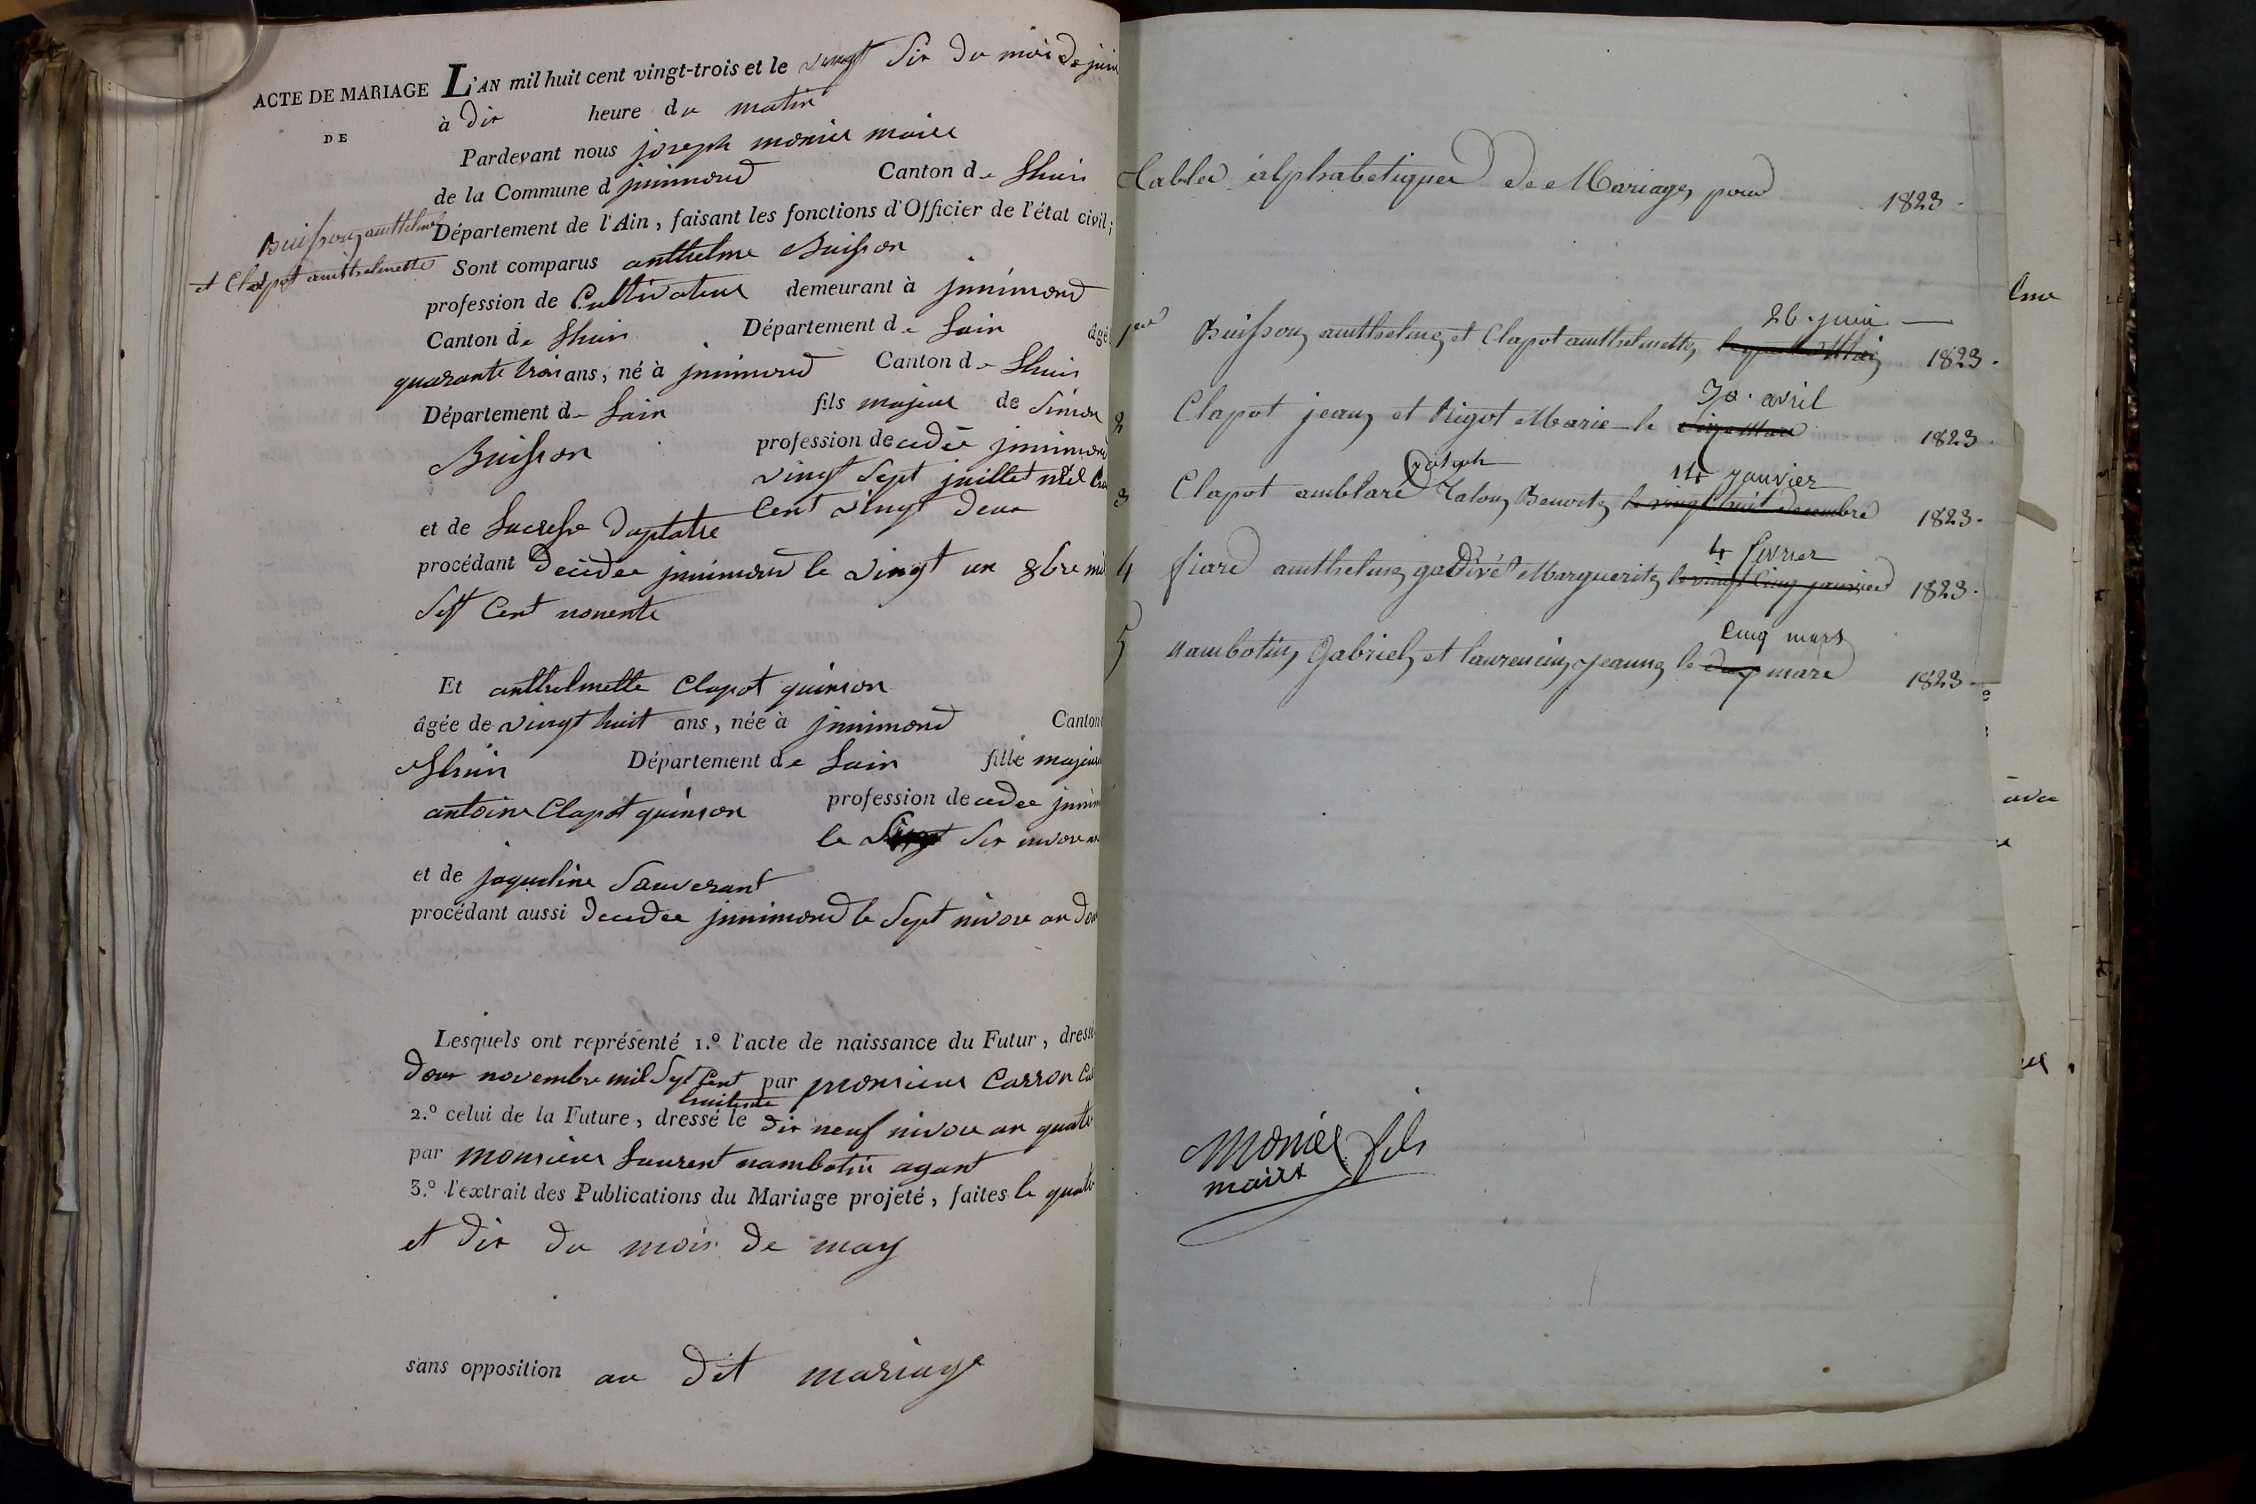 ACTE DE MARIAGE
DE
Buisson anthelme
et Clapot anthelmette
L'AN mil huit cent vingt-trois et le vingt Six du mois de juin
à dix heure du matin
Pardevant nous joseph monier maire
de la Commune d jnnimond Canton de Lhuis
Département de l'Ain, faisant les fonctions d'Officier de l'état civil;
Sont comparus anthelme Buisson
profession de Cultivateur demeurant à jnnimond
Canton de Lhuis Département de Lain âgé
quarante trois ans, né à jnnimond Canton de Lhuis
Département de Lain fils majeur de Simon
Buisson profession de cedée jnnimond
vingt Sept juillet mil
Cent vingt deux
et de
procédant decedee jnnimond le vingt un 8bre mil
Sept Cent nonente
Et anthelmette Clapot quinson
âgée de vingt huit ans, née à jnnimond Canton
Lhuis Département de Lain fille majeure
antoine Clapot quinson profession de cedee
le Six nivose
et de jaqueline Sauverant
procédant aussi decedee jnnimond le Sept nivose an
Lesquels ont représenté 1.º l'acte de naissance du Futur, dressé
novembre mil Sept Cent par monsieur Carron
huitente
2.º celui de la Future, dressé le dix neuf nivose an quatre
par monsieur Laurent nambotin agant
3.º l'extrait des Publications du Mariage projeté, faites le quatre
et dix du mois de may
sans opposition au dit mariage
Tables alphabetiques de Mariages, pour 1823.
26 juin
1er Buisson, anthelme, et Clapot anthelmette, 1823.
30 avril
2 Clapot jean, et Rigot Marie le 1823.
joseph 14 janvier
3 Clapot amblard Talon, Benoite, le vingt huit decembre 1823.
4 fevrier
4 fiard anthelme, godivé Marguerite, le vingt cinq janvier 1823.
Cinq mars
5 nambotin, Gabriel, et laurencin, jeanne, le mars 1823
Monier fils
maire